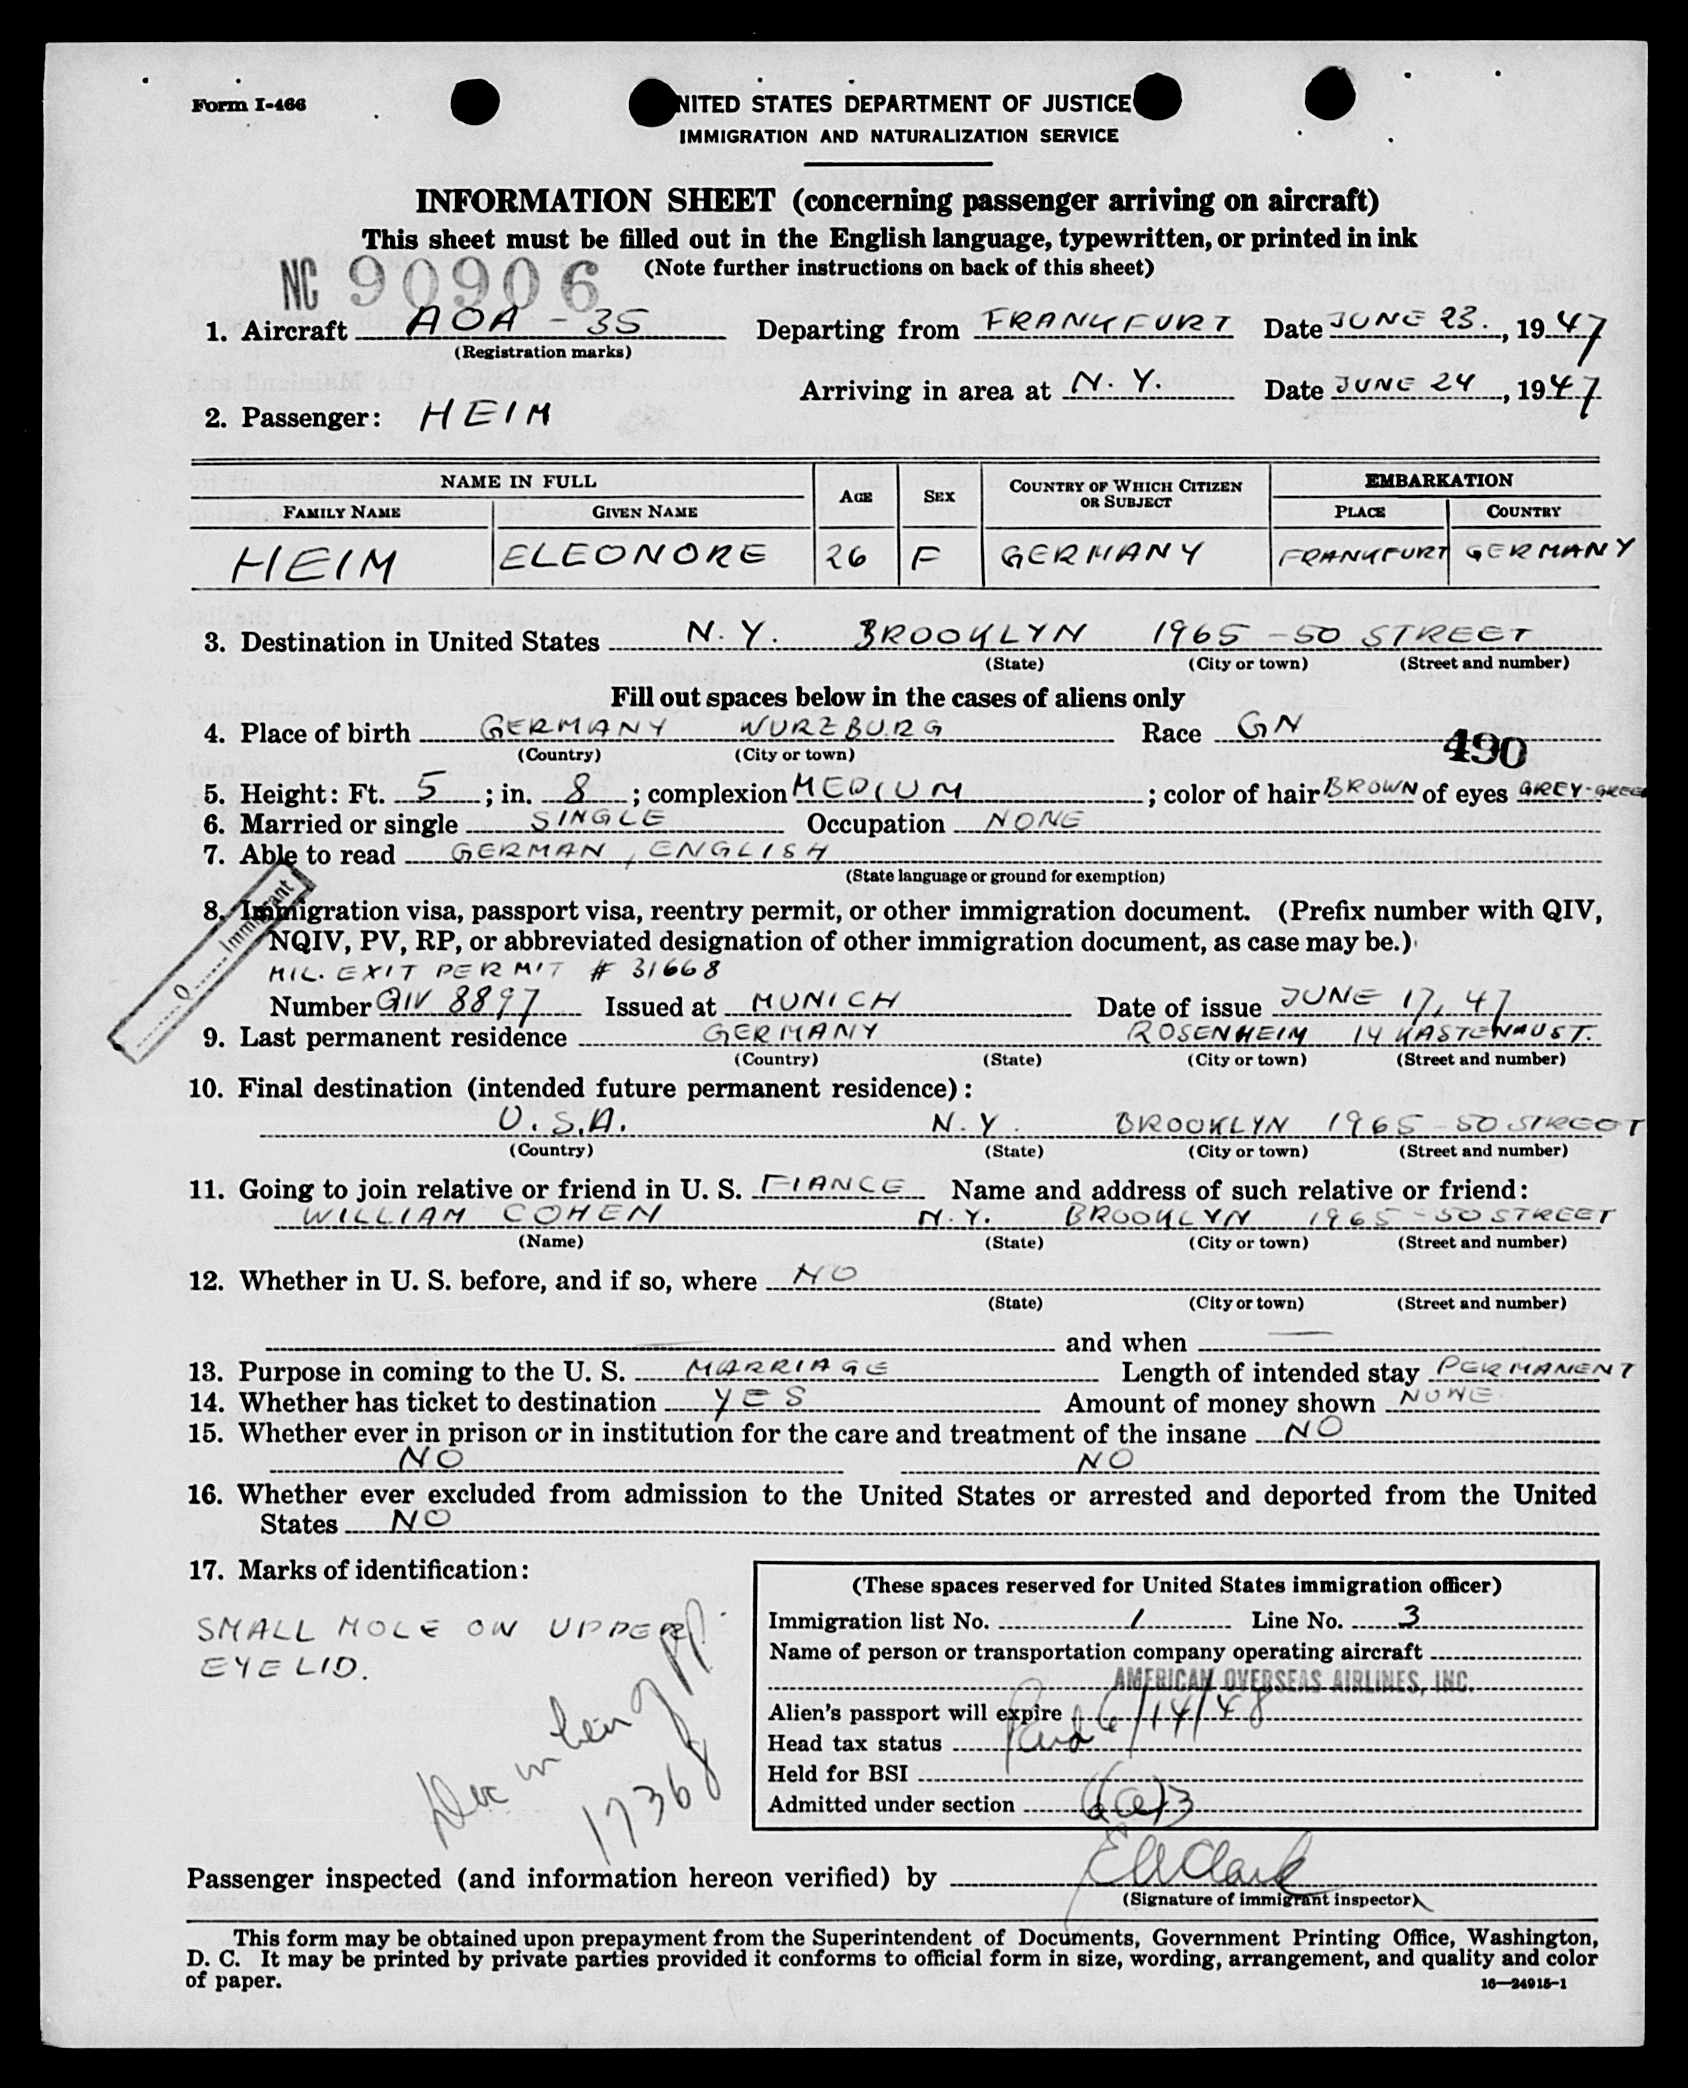 Form I-466
UNITED STATES DEPARTMENT OF JUSTICE
IMMIGRATION AND NATURALIZATION SERVICE
INFORMATION SHEET (concerning passenger arriving on aircraft)
This sheet must be filled out in the English language, typewritten, or printed in ink
(Note further instructions on back of this sheet)
NC 90906
1. Aircraft AOA - 35 Departing from FRANKFURT Date JUNE 23., 1947
(Registration marks)
Arriving in area at N. Y. Date JUNE 24, 1947
2. Passenger: HEIM
NAME IN FULL AGE SEX COUNTRY OF WHICH CITIZEN OR SUBJECT EMBARKATION
FAMILY NAME GIVEN NAME PLACE COUNTRY
HEIM ELEONORE 26 F GERMANY FRANKFURT GERMANY
3. Destination in United States N. Y. BROOKLYN 1965 - 50 STREET
(State) (City or town) (Street and number)
Fill out spaces below in the cases of aliens only
4. Place of birth GERMANY WURZBURG Race GN
(Country) (City or town)
490
5. Height: Ft. 5; in. 8; complexion MEDIUM; color of hair BROWN of eyes GREY-GREEN
6. Married or single SINGLE Occupation NONE
7. Able to read GERMAN, ENGLISH
(State language or ground for exemption)
Q Immigrant
8. Immigration visa, passport visa, reentry permit, or other immigration document. (Prefix number with QIV,
NQIV, PV, RP, or abbreviated designation of other immigration document, as case may be.)
MIL. EXIT PERMIT # 31668
Number QIV 8897 Issued at MUNICH Date of issue JUNE 17, 47
9. Last permanent residence GERMANY ROSENHEIM 14 KASTENAUST.
(Country) (State) (City or town) (Street and number)
10. Final destination (intended future permanent residence):
U.S.A. N.Y. BROOKLYN 1965 - 50 STREET
(Country) (State) (City or town) (Street and number)
11. Going to join relative or friend in U. S. FIANCE Name and address of such relative or friend:
WILLIAM COHEN N.Y. BROOKLYN 1965 - 50 STREET
(Name) (State) (City or town) (Street and number)
12. Whether in U. S. before, and if so, where NO
(State) (City or town) (Street and number)
and when —
13. Purpose in coming to the U. S. MARRIAGE Length of intended stay PERMANENT
14. Whether has ticket to destination YES Amount of money shown NONE
15. Whether ever in prison or in institution for the care and treatment of the insane NO
NO NO
16. Whether ever excluded from admission to the United States or arrested and deported from the United
States NO
17. Marks of identification:
SMALL MOLE ON UPPER
EYELID.
17368
(These spaces reserved for United States immigration officer)
Immigration list No. 1 Line No. 3
Name of person or transportation company operating aircraft
AMERICAN OVERSEAS AIRLINES, INC.
Alien's passport will expire 6/14/48
Head tax status Paid
Held for BSI
Admitted under section 6(a)3
Passenger inspected (and information hereon verified) by E W Clark
(Signature of immigrant inspector)
This form may be obtained upon prepayment from the Superintendent of Documents, Government Printing Office, Washington,
D. C. It may be printed by private parties provided it conforms to official form in size, wording, arrangement, and quality and color
of paper.
16—24915-1